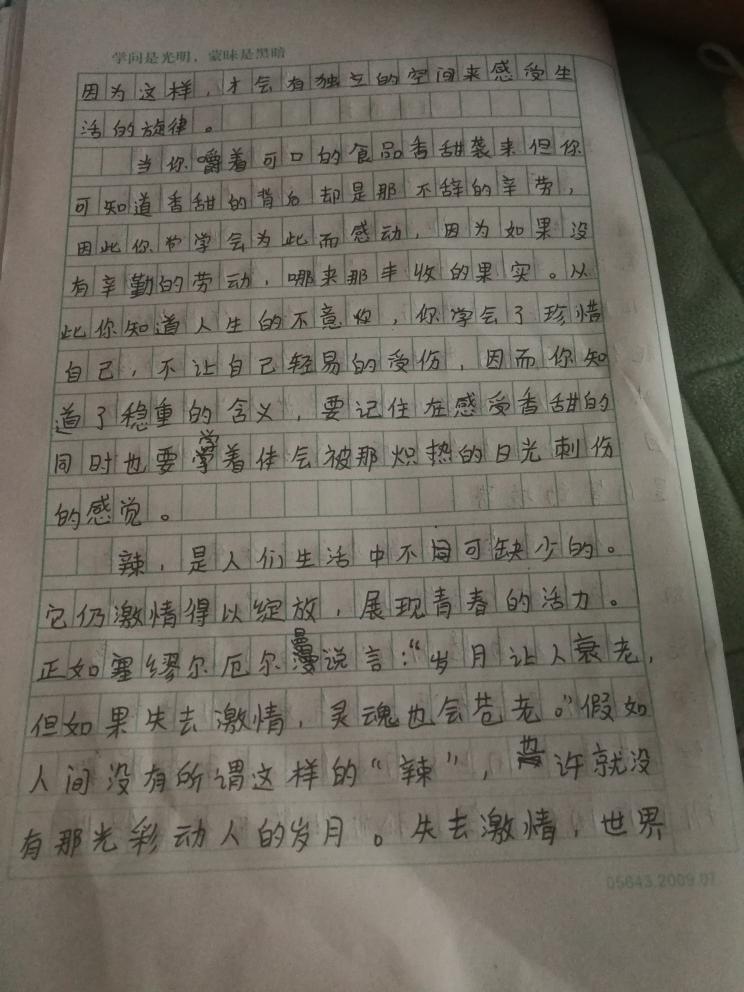 学问是光明，蒙昧是黑暗
因为这样，才会有独立的空间来感受生
活的旋律。
当你嚼着可口的食品香甜袭来但你
可知道香甜的背后却是那不辞的辛劳，
因此你学会为此而感动，因为如果没
有辛勤的劳动，哪来那丰收的果实。从
此你知道人生的不意收，你学会了珍惜
自己，不让自己轻易的受伤，因而你知
道了稳重的含义，要记住在感受香甜的
同时也要学着体会被那炽热的日光刺伤
的感觉。
辣，是人们生活中不可缺少的。
它仍激情得以绽放，展现青春的活力。
正如塞缪尔厄尔曼说言：“岁月让人衰老，
但如果失去激情，灵魂也会苍老。”假如
人间没有所谓这样的“辣”，也许就没
有那光彩动人的岁月。失去激情，世界
05643.2009.07